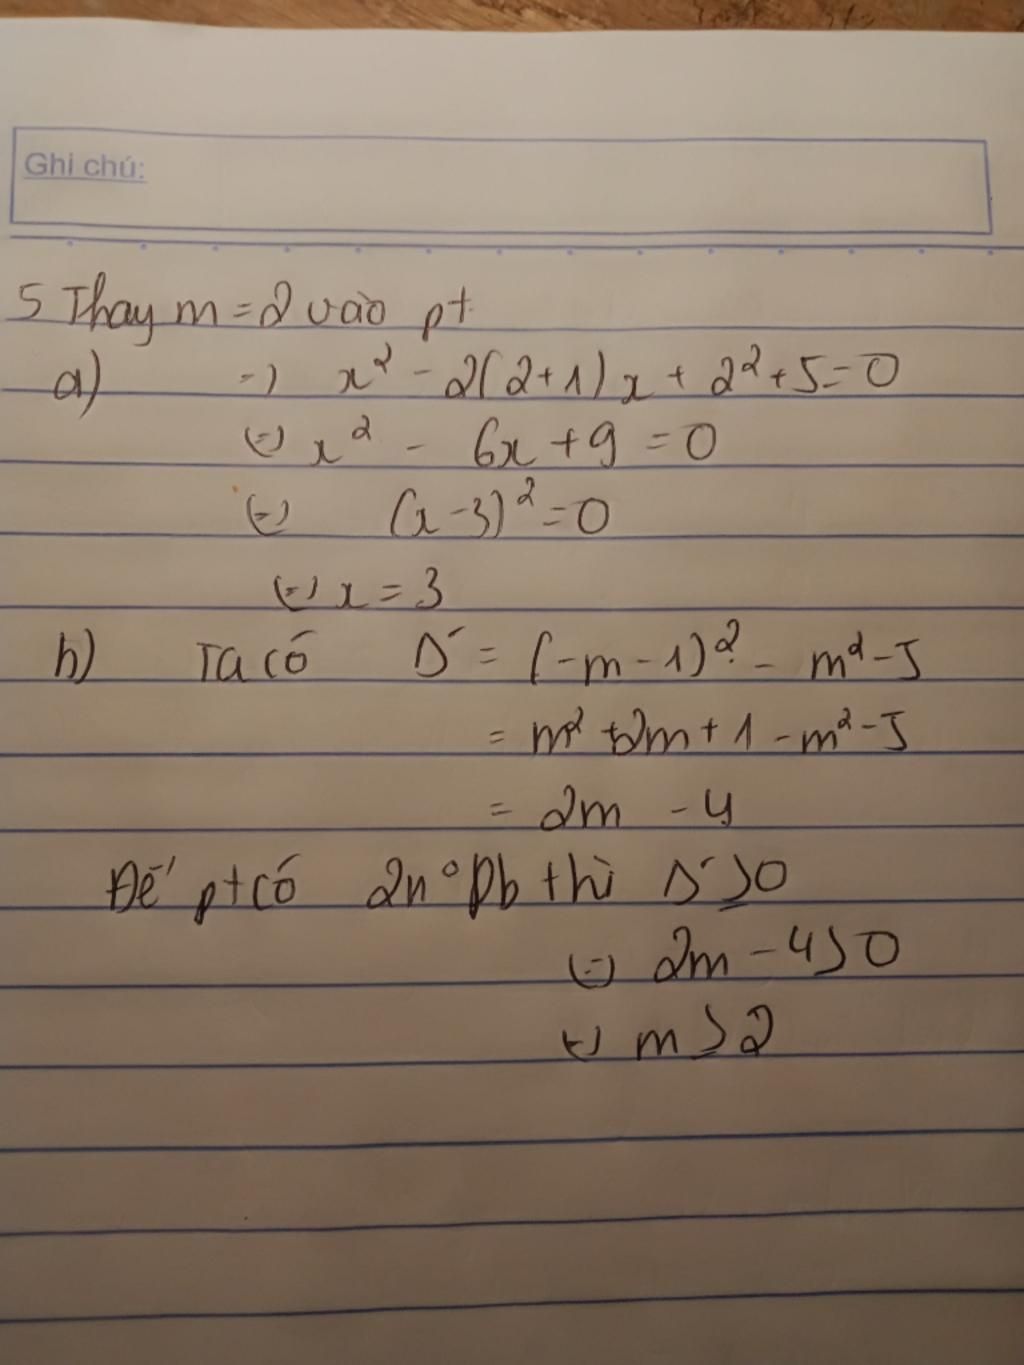 Ghi chú:
5 Thay m = 2 vào pt
a) => x² - 2(2+1)x + 2² + 5 = 0
<=> x² - 6x + 9 = 0
<=> (x-3)² = 0
<=> x = 3
b) Ta có Δ' = (-m-1)² - m² - 5
= m² + 2m + 1 - m² - 5
= 2m - 4
Để pt có 2n° pb thì Δ' > 0
<=> 2m - 4 > 0
<=> m > 2